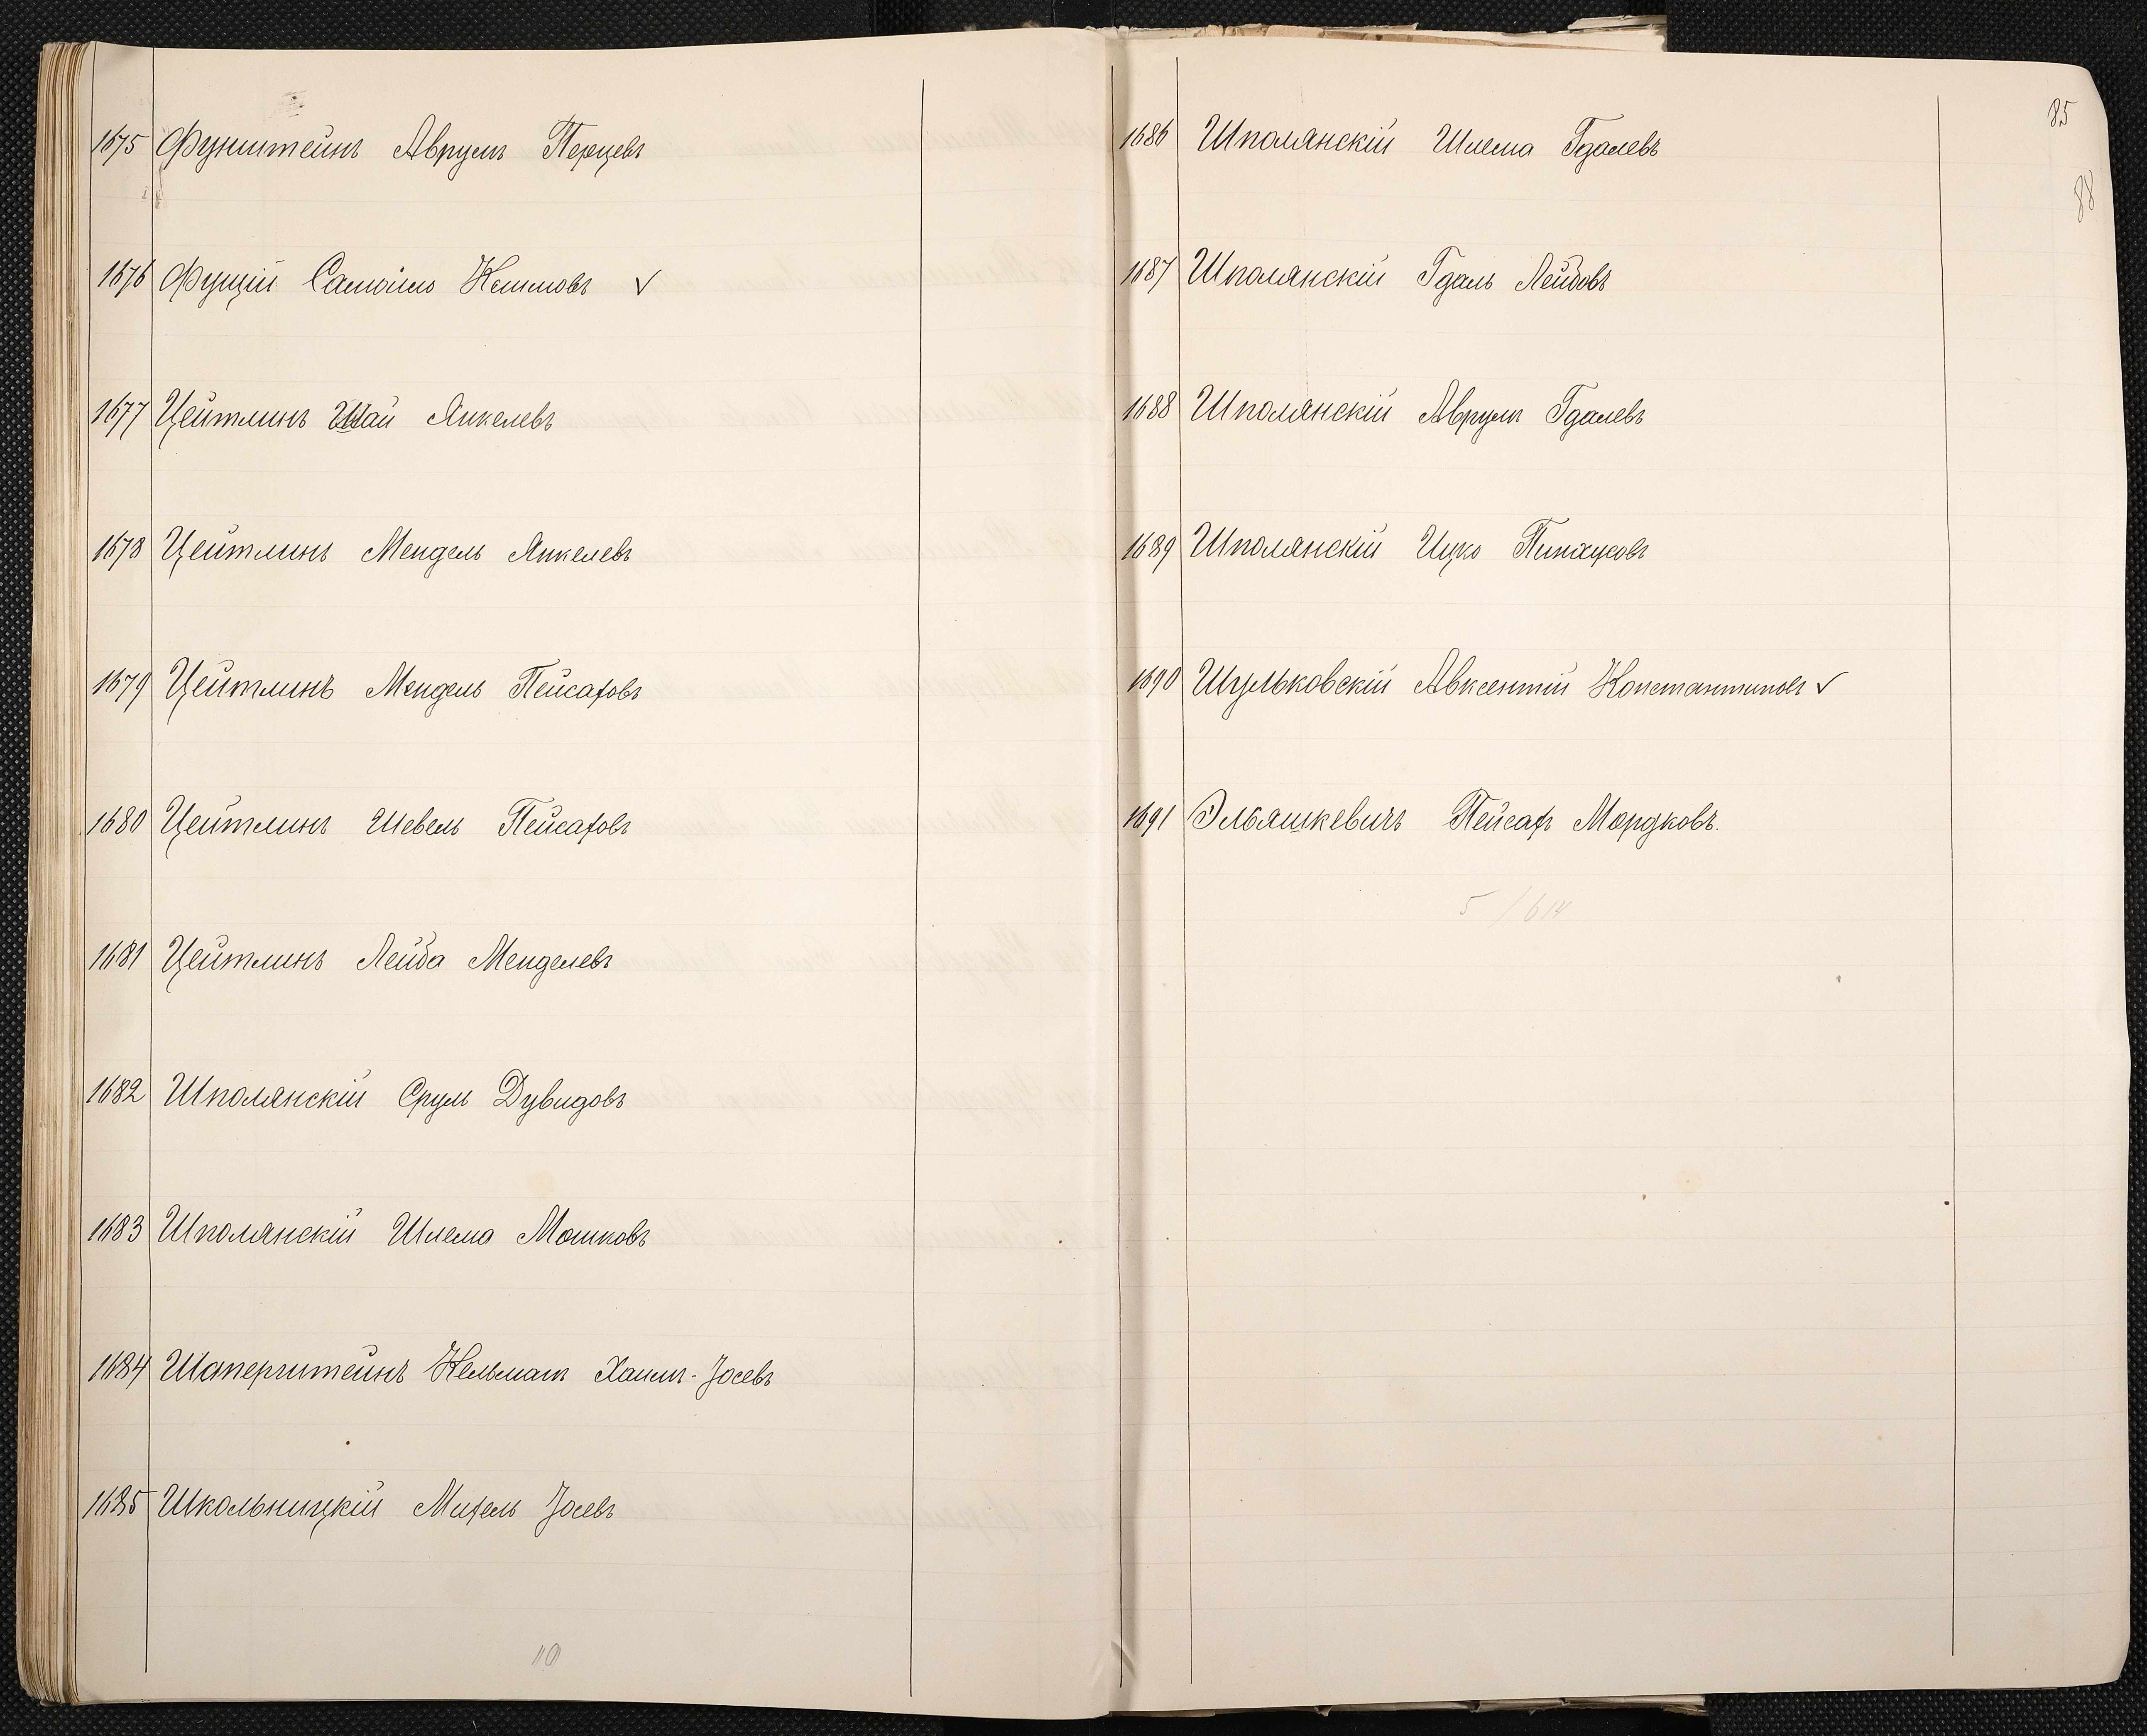 1675 Фунштейнъ Аврумъ Перцевъ
1676 Фущій Самойло ✓
1677 Цейтлинъ Шай Янкелевъ
1678 Цейтлинъ Мендель Янкелевъ
1679 Цейтлинъ Мендель Пейсаховъ
1680 Цейтлинъ Шевель Пейсаховъ
1681 Цейтлинъ Лейба Менделевъ
1682 Шполянскій Сруль Дувидовъ
1683 Шполянскій Шлема Мошковъ
1684 Шаперштейнъ Кельманъ Хаимъ-Іосевъ
1685 Школьницкій Михель Іосевъ
10
85
88
1686 Шполянскій Шлема Гдалевъ
1687 Шполянскій Гдаль Лейбовъ
1688 Шполянскій Аврумъ Гдалевъ
1689 Шполянскій Ицко Пинхусовъ
1690 Шульковскій Авксентій Константиновъ ✓
1691 Эльяшкевичъ Пейсахъ Мордковъ.
5 / 614